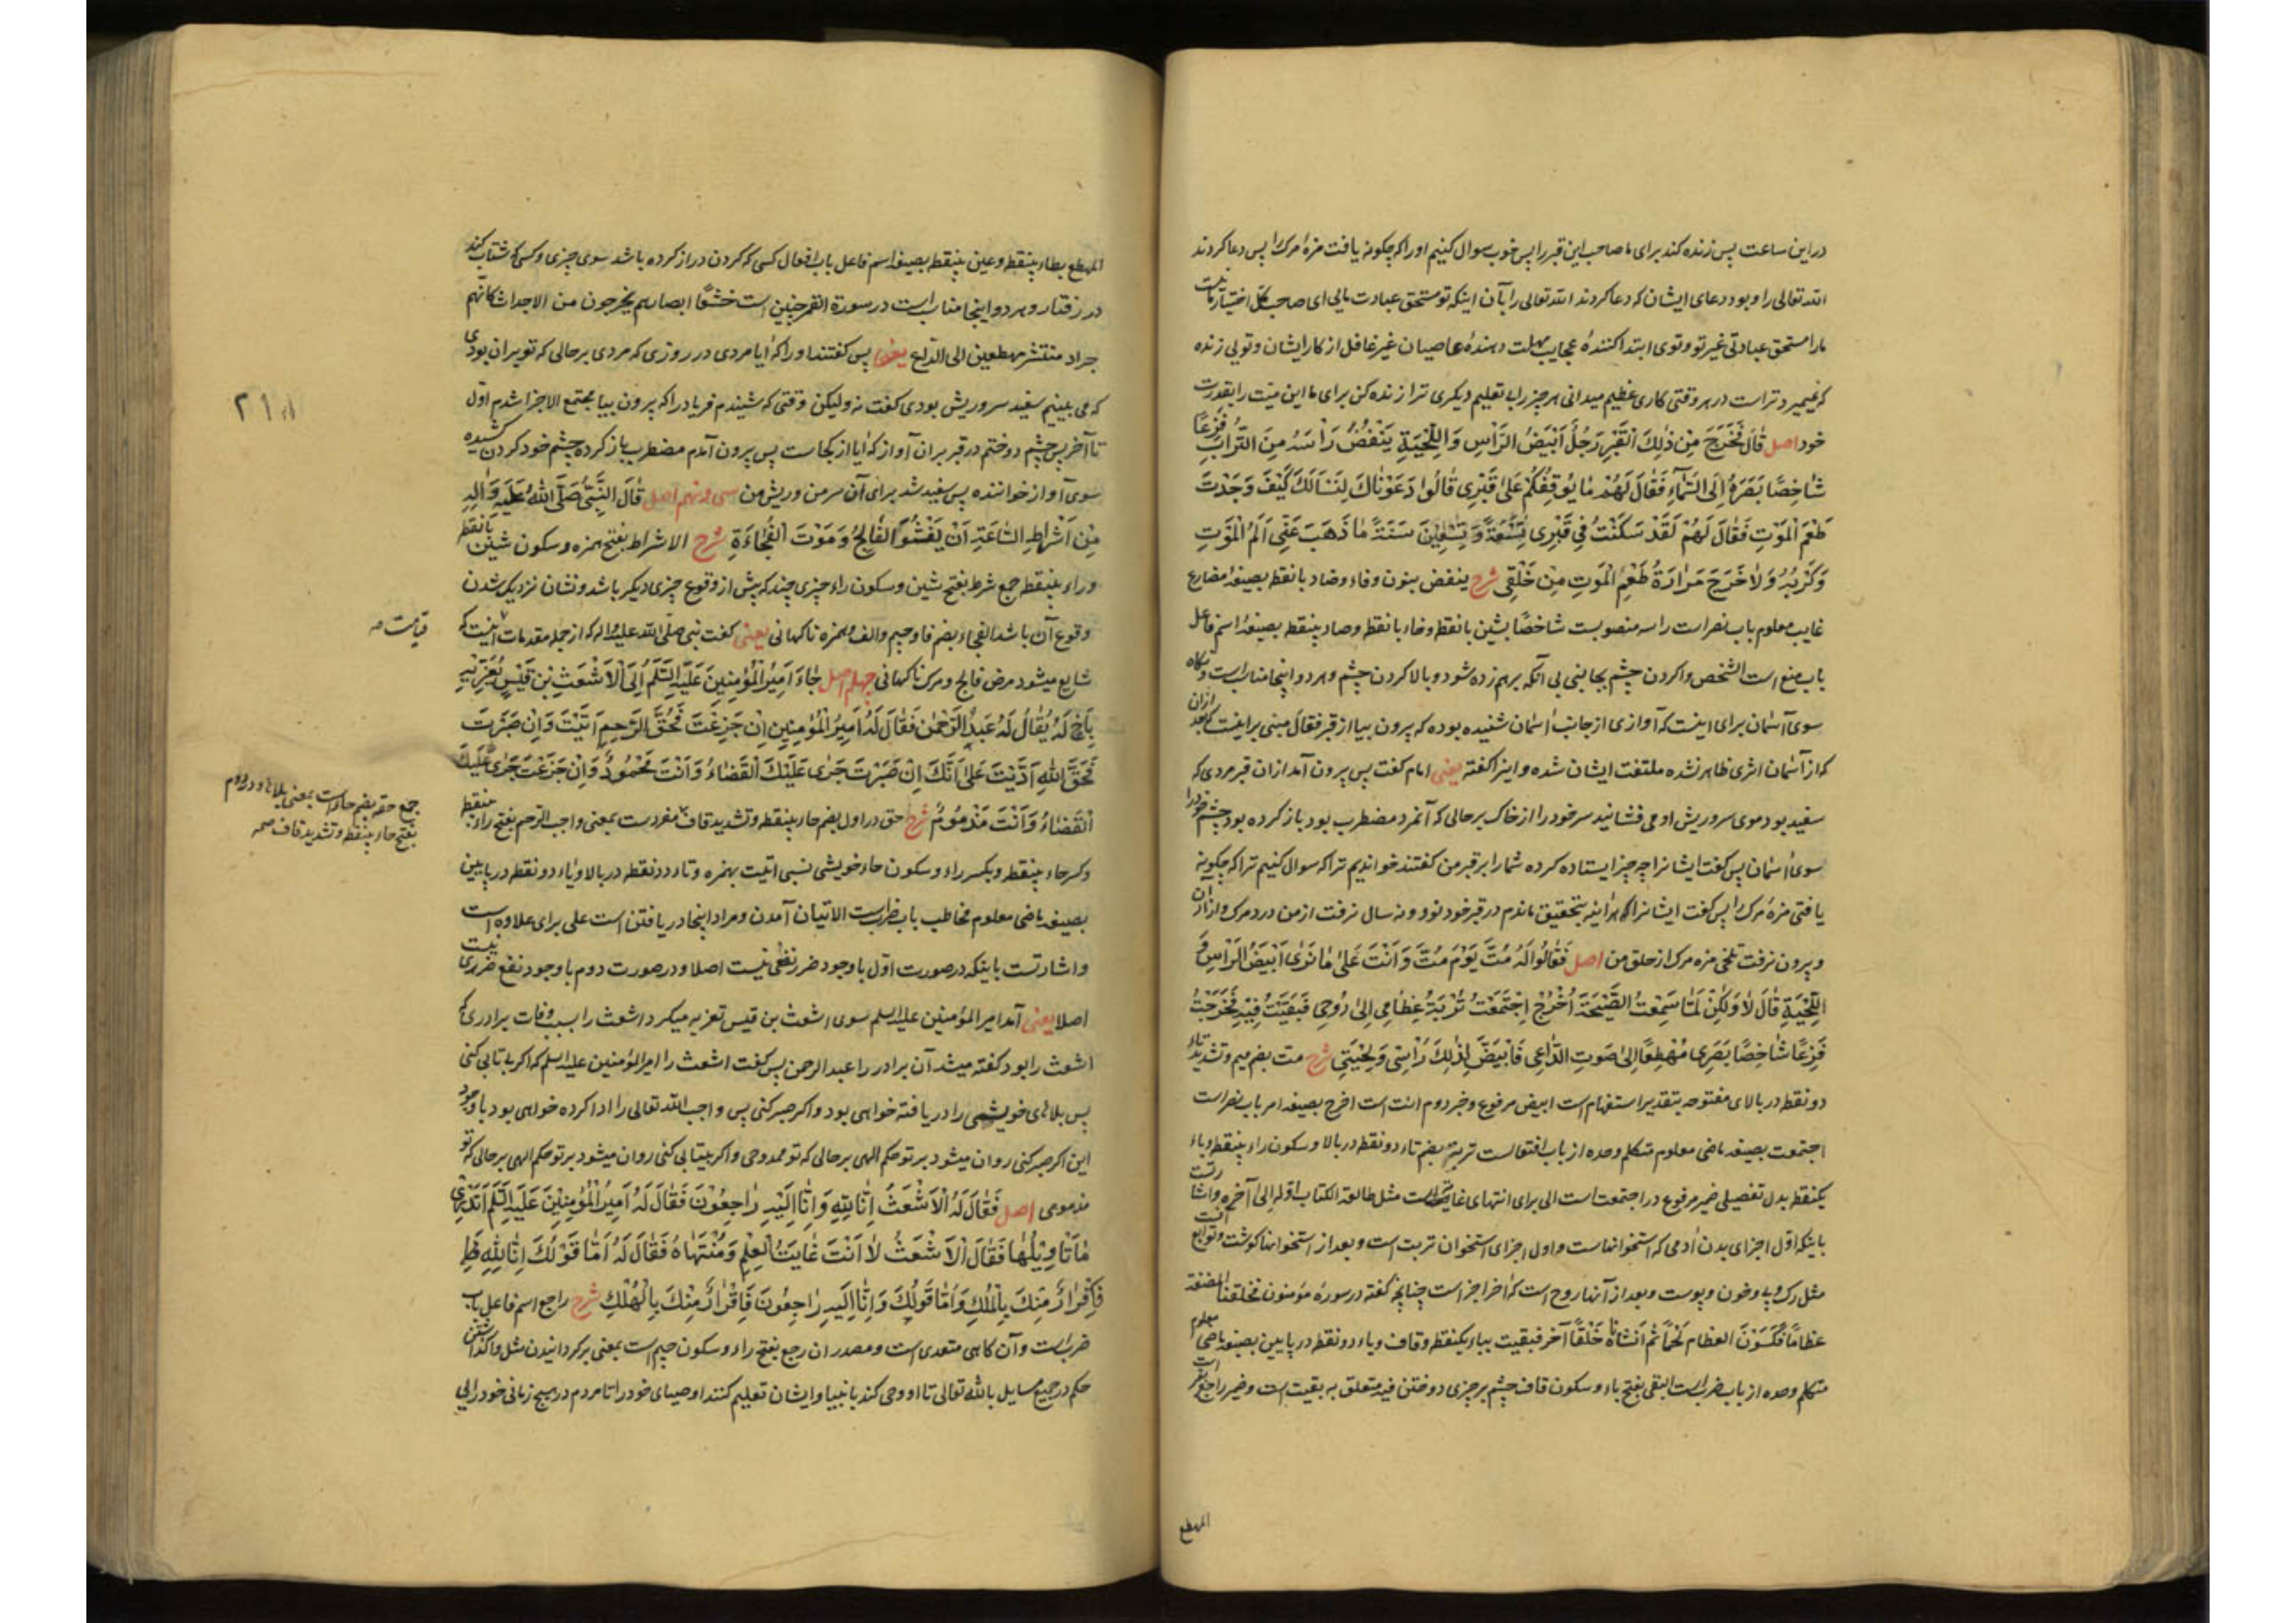 در این ساعت پس زنده کند برای ما صاحب این قبر را پس خوب سوال کنیم او را که چکونه یافت مزهٔ مرک را پس دعا کردند
الله تعالی را و بود دعای ایشان که دعا کردند الله تعالی را بآن اینکه تو مستحق عبادت مایی ای صاحب کل اختیار ما نیست
ما را مستحق عبادتی غیر تو و توی ابتدا کنندهٔ عجایب مهلت دهندهٔ عاصیان غیر غافل از کار ایشان و تویی زنده
که نمیمیرد تراست در هر وقتی کاری عظیم میدانی هر چیز را بی تعلیم دیکری ترا زنده کن برای ما این میّت را بقدرت
خود اصل قَالَ فَخَرَجَ مِنْ ذٰلِكَ الْقَبْرِ رَجُلٌ اَبْيَضُ الرَّأْسِ وَ اللِّحْيَةِ يَنْفُضُ رَأْسَهُ مِنَ التُّرَابِ فَزِعًا
شَاخِصًا بَصَرَهُ اِلَى السَّمَآءِ فَقَالَ لَهُمْ مَا يُوقِفُكُمْ عَلٰى قَبْرِى قَالُوا دَعَوْنَاكَ لِنَسْأَلَكَ كَيْفَ وَجَدْتَ
طَعْمَ الْمَوْتِ فَقَالَ لَهُمْ لَقَدْ سَكَنْتُ فِى قَبْرِى تِسْعَةً وَ تِسْعِينَ سَنَةً مَا ذَهَبَ عَنِّى اَلَمُ الْمَوْتِ
وَكَرْبُهُ وَلَا خَرَجَ مَرَارَةُ طَعْمِ الْمَوْتِ مِنْ حَلْقِى شرح ینفض بنون و فاء و ضاد با نقطه بصیغهٔ مضارع
غایب معلوم باب نصر است راسه منصوبست شاخصًا بشین با نقطه و خاء با نقطه و صاد بینقطه بصیغهٔ اسم فاعل
باب منع است الشخص وا کردن چشم بجانبی بی آنکه برهم زده شود و بالا کردن چشم و هر دو اینجا مناسبست و نکاه
سوی آسمان برای اینست که آوازی از جانب آسمان شنیده بوده که بیرون بیا از قبر فقال مبنی بر اینست که بعد از ان
که از آسمان اثری ظاهر نشده ملتفت ایشان شده و اینرا کفته یعنی امام کفت پس بیرون آمد از ان قبر مردی که
سفید بود موی سر و ریش او می فشانید سر خود را از خاک بر حالی که آنمرد مضطرب بود باز کرده بود چشم خود را
سوی آسمان پس کفت ایشانرا چه چیز ایستاده کرده شما را بر قبر من کفتند خواندیم ترا که سوال کنیم ترا که چکونه
یافتی مزهٔ مرک را پس کفت ایشانرا که هر آینه بتحقیق ماندم در قبر خود نود و نه سال نرفت از من درد مرک و آزار آن
و بیرون نرفت تلخی مزه مرک از حلق من اصل فَقَالُوا لَهُ مُتَّ يَوْمَ مُتَّ وَ اَنْتَ عَلٰى مَا نَرٰى اَبْيَضُ الرَّأْسِ وَ
اللِّحْيَةِ قَالَ لَا وَلٰكِنْ لَمَّا سَمِعْتُ الصَّيْحَةَ اُخْرُجْ اِجْتَمَعَتْ تُرْبَةُ عِظَامِى اِلٰى رُوحِى فَبَقَيْتُ فِيهِ فَخَرَجْتُ
فَزِعًا شَاخِصًا بَصَرِى مُهْطِعًا اِلٰى صَوْتِ الدَّاعِى فَابْيَضَّ لِذٰلِكَ رَأْسِى وَلِحْيَتِى شرح مت بضم میم و تشدید تاء
دو نقطه در بالای مفتوحه بتقدیر استفهام است ابیض مرفوع و خبر دوم انت است اخرج بصیغه امر باب نصر است
اجتمعت بصیغه ماضی معلوم متکلم وحده از باب افتعالست تربة بضم تاء دو نقطه در بالا و سکون راء بینقطه و باء
یکنقطه بدل تفصیلی ضمیر مرفوع در اجتمعت است الی برای انتهای غایتست مثل طالعة الکتاب اوله الی آخره و اشارتست
باینکه اوّل اجزای بدن آدمی که استخوانهاست و اول اجزای استخوان تربت است و بعد از استخوانها کوشت و توابع آنست
مثل رک و پی و خون و پوست و بعد از آنها روح است که آخر اجزا است چنانچه کفته در سورهٔ مؤمنون فخلقنا المضغة
عظامًا فَكَسَوْنَ العظام لَحْمًا ثم اَنْشَأْنَاهُ خَلْقًا آخر فبقیت بباء یکنقطه و قاف و یاء دو نقطه در پایین بصیغه ماضی معلوم
متکلم وحده از باب ضرب است البقی بفتح باء و سکون قاف چشم بر چیزی دوختن فیه متعلق به بقیت است و ضمیر راجع بقبر است
المهطع
المهطع بطاء بینقطه و عین بینقطه بصیغه اسم فاعل باب افعال کسی که کردن دراز کرده باشد سوی چیزی و کسی که شتاب کند
در رفتار و هر دو اینجا مناسب است در سورة القمر چنین است خشّعًا ابصارهم یخرجون من الاجداث کانّهم
جراد منتشر مهطعین الی الدّاع یعنی پس کفتند او را که آیا مردی در روزی که مردی بر حالی که تو بر آن بودی
که می بینیم سفید سر و ریش بودی کفت نه ولیکن وقتی که شنیدم فریاد را که بیرون بیا مجتمع الاجزا شدم اوّل
تا آخر پس چشم دوختم در قبر بر آن آواز که آیا از کجاست پس بیرون آمدم مضطرب باز کرده چشم خود کردن کشیده
سوی آواز خواننده پس سفید شد برای آن سر من و ریش من سی و نهم اصل قَالَ النَّبِىُّ صَلَّى اللهُ عَلَيْهِ وَ اٰلِهِ
مِنْ اَشْرَاطِ السَّاعَةِ اَنْ يَفْشُوَ الْفَالِجُ وَ مَوْتَ الْفُجَاءَةِ شرح الاشراط بفتح همزه و سکون شین با نقطه
و راء بینقطه جمع شرط بفتح شین و سکون راء چیزی چند که پیش از وقوع چیزی دیکر باشد و نشان نزدیک شدن
وقوع آن باشد الفجاءة بضم فا و جیم و الف و همزه ناکهانی یعنی کفت نبی صلّی الله علیه و اله که از جمله مقدمات اینست که
قیامت صح
شایع میشود مرض فالج و مرک ناکهانی چهلم اصل جَاءَ اَمِيرُ الْمُؤْمِنِينَ عَلَيْهِ السَّلَمُ اِلَى الْاَشْعَثِ بْنِ قَيْسٍ يُعَزِّيهِ
بِاَخٍ لَهُ يُقَالُ لَهُ عَبْدُ الرَّحْمٰنِ فَقَالَ لَهُ اَمِيرُ الْمُؤْمِنِينَ اِنْ جَزِعْتَ فَحَقَّ الرَّحِمِ اَتَيْتَ وَ اِنْ صَبَرْتَ
فَحَقَّ اللهِ اَدَّيْتَ عَلٰى اَنَّكَ اِنْ صَبَرْتَ جَرٰى عَلَيْكَ الْقَضَاءُ وَ اَنْتَ مَحْمُودٌ وَ اِنْ جَزِعْتَ جَرٰى عَلَيْكَ
الْقَضَاءُ وَ اَنْتَ مَذْمُومٌ شرح حق در اول بضم حاء بینقطه و تشدید قاف مفردست بمعنی واجب الرحم بفتح راء بینقطه
جمع حقه بضم حاء است بمعنی بلاها و در دوم
بفتح حاء بینقطه و تشدید قاف صح
و کسر حاء بینقطه و بکسر راء و سکون حاء خویشی نسبی اتیت بهمزه و تاء دو نقطه در بالا و یاء دو نقطه در پایین
بصیغه ماضی معلوم مخاطب باب ضرب است الاتیان آمدن و مراد اینجا دریافتن است علی برای علاوه است
و اشارتست باینکه در صورت اوّل با وجود ضرر نفعی نیست اصلا و در صورت دوم با وجود نفع ضرری نیست
اصلا یعنی آمد امیر المؤمنین علیه السلم سوی اشعث بن قیس تعزیه میکرد اشعث را بسبب وفات برادری که
اشعث را بود کفته میشد آن برادر را عبد الرحمن پس کفت اشعث را امیر المؤمنین علیه السلم که اکر بی تابی کنی
پس بلاهای خویشی را دریافته خواهی بود و اکر صبر کنی پس واجب الله تعالی را ادا کرده خواهی بود با وجود
این اکر صبر کنی روان میشود بر تو حکم الهی بر حالی که تو ممدوحی و اکر بیتابی کنی روان میشود بر تو حکم الهی بر حالی که تو
مذمومی اصل فَقَالَ لَهُ الْاَشْعَثُ اِنَّا لِلّٰهِ وَ اِنَّا اِلَيْهِ رَاجِعُونَ فَقَالَ لَهُ اَمِيرُ الْمُؤْمِنِينَ عَلَيْهِ السَّلَمُ اَتَدْرِى
مَا تَأْوِيلُهَا فَقَالَ الْاَشْعَثُ لَا اَنْتَ غَايَةُ الْعِلْمِ وَ مُنْتَهَاهُ فَقَالَ لَهُ اَمَّا قَوْلُكَ اِنَّا لِلّٰهِ
فَاِقْرَارٌ مِنْكَ بِالْمُلْكِ وَ اَمَّا قَوْلُكَ وَ اِنَّا اِلَيْهِ رَاجِعُونَ فَاِقْرَارٌ مِنْكَ بِالْهُلْكِ شرح راجع اسم فاعل باب
ضرب است و آن کاهی متعدی است و مصدر ان رجع بفتح راء و سکون جیم است بمعنی بر کردانیدن مثل وا کذاشتن
حکم در جمیع مسایل بالله تعالی تا او وحی کند بانبیا و ایشان تعلیم کنند اوصیای خود را تا مردم در هیچ زمانی خود رایی